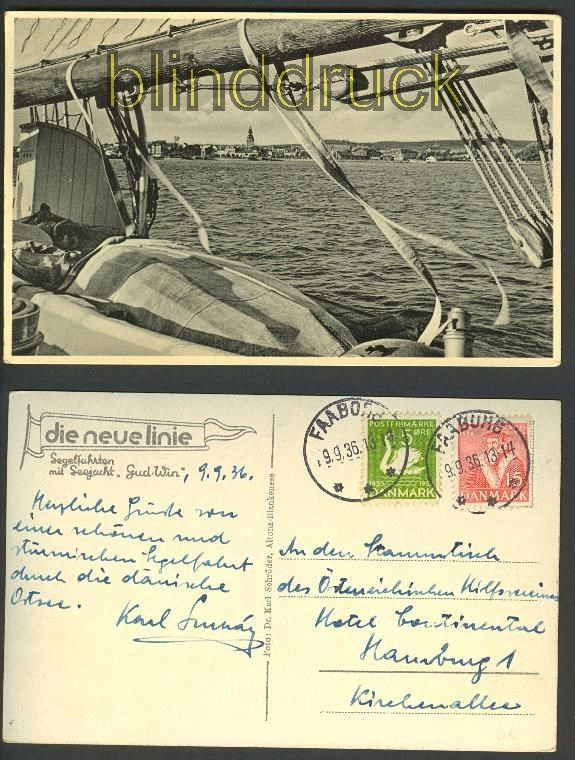 blinddruck
die neue linie
Segelfahrten
mit Seejacht „Gud-Win", 9.9.36.
Herzliche Grüße von
einer schönen und
stürmischen Segelfahrt
durch die dänische
Ostsee.
Karl
Foto: Dr. Karl Schröder, Altona-Blankenese
FAABORG
9.9.36.13-14
POSTFRIMÆRKE
5
ØRE
1835 1935
DANMARK
FAABORG
9.9.36.13-14
15
DANMARK
An den Stammtisch
des Österreichischen Hilfsvereines
Hotel Continental
Hamburg 1
Kirchenallee